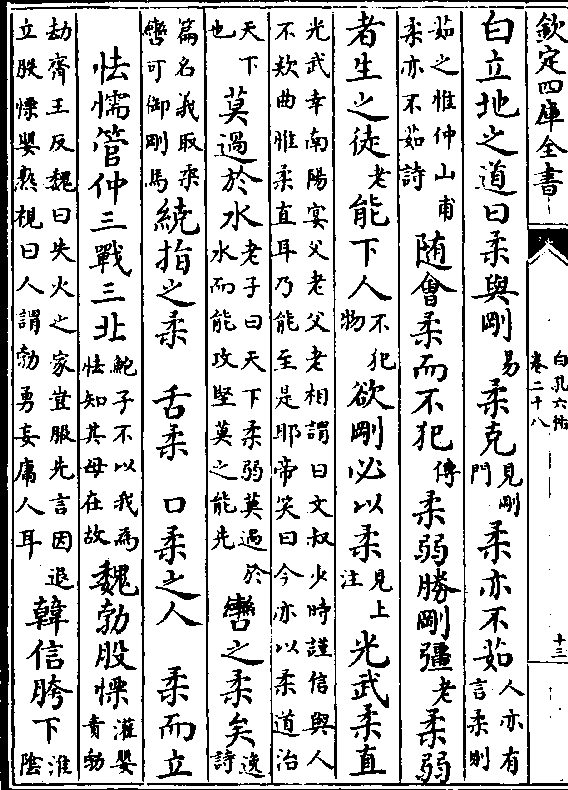 欽定四庫全書
白孔六帖
卷二十八
十三
白立地之道曰柔與剛易柔克見剛門柔亦不茹人亦有言柔則
茹之惟仲山甫柔亦不茹詩隨會柔而不犯傳柔弱勝剛彊老柔弱
者生之徒老能下人不犯物欲剛必以柔見上注光武柔直
光武幸南陽宴父老父老相謂曰文叔少時謹信與人不欵曲惟柔直耳乃能至是耶帝笑曰今亦以柔道治
天下也莫過於水老子曰天下柔弱莫過於水而能攻堅莫之能先轡之柔矣逸詩
篇名義取柔轡可御剛馬繞指之柔 舌柔 口柔之人 柔而立
怯懦管仲三戰三北鮑子不以我為怯知其母在故魏勃股慄灌嬰責勃
劫齊王反魏曰失火之家豈服先言因退立股慄嬰熟視曰人謂勃勇妄庸人耳韓信胯下淮陰